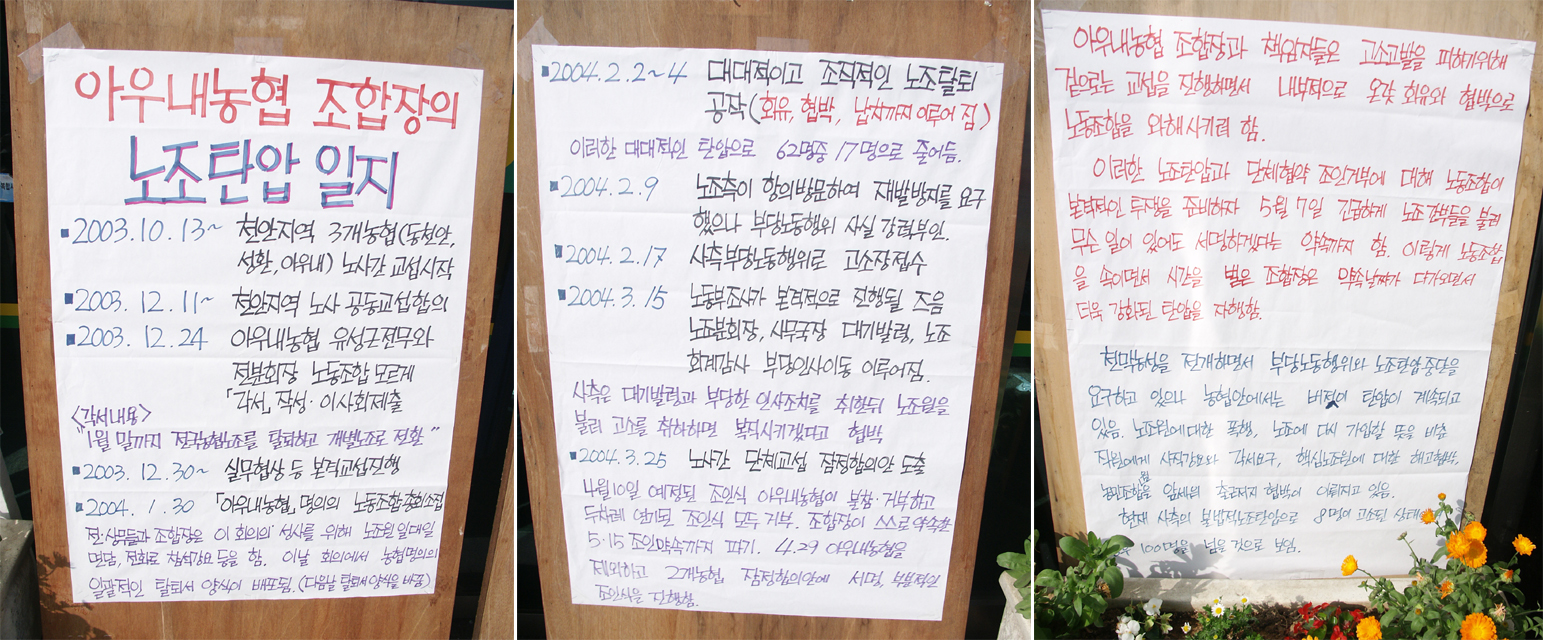 아우내농협 조합장의
노조탄압 일지
▪2003.10.13~ 천안지역 3개농협(동천안,
성환,아우내) 노사간 교섭시작
▪2003. 12. 11~ 천안지역 노사 공동교섭합의
▪2003. 12. 24 아우내농협 유성근전무와
전분회장 노동조합 모르게
「각서」 작성· 이사회제출
<각서내용>
"1월 말까지 전국농협노조를 탈퇴하고 개별노조로 전환"
▪2003. 12. 30~ 실무협상 등 본격교섭진행
▪2004. 1. 30 「아우내농협」명의의 노동조합총회소집
전·상무들과 조합장은 이 회의의 성사를 위해 노조원 일대일
면담, 전화로 참석강요 등을 함. 이날 회의에서 농협명의의
일괄적인 탈퇴서 양식이 배포됨. (다음날 탈퇴서양식을 바꿈)
▪2004. 2. 2~4 대대적이고 조직적인 노조탈퇴
공작(회유, 협박, 납치까지 이루어 짐)
이러한 대대적인 탄압으로 62명중 17명으로 줄어듬.
▪2004. 2. 9 노조측이 항의방문하여 재발방지를 요구
했으나 부당노동행위 사실 강력부인.
▪2004. 2. 17 사측부당노동행위로 고소장접수
▪2004. 3. 15 노동부조사가 본격적으로 진행될 즈음
노조분회장, 사무국장 대기발령, 노조
회계감사 부당인사이동 이루어짐.
사측은 대기발령과 부당한 인사조치를 취한뒤 노조원을
불러 고소를 취하하면 복직시키겠다고 협박
▪2004. 3. 25 노사간 단체교섭 잠정합의안 도출
4월10일 예정된 조인식 아우내농협이 불참·거부하고
두차례 연기된 조인식 모두 거부. 조합장이 스스로 약속한
5·15 조인약속까지 파기. 4.29 아우내농협을
제외하고 2개농협 잠정합의안에 서명, 부분적인
조인식을 진행함.
아우내농협 조합장과 책임자들은 고소고발을 피하기위해
겉으로는 교섭을 진행하면서 내부적으로 온갖 회유와 협박으로
노동조합을 와해시키려 함.
이러한 노조탄압과 단체협약 조인거부에 대해 노동조합이
본격적인 투쟁을 준비하자 5월 7일 긴급하게 노조간부들을 불러
무슨 일이 있어도 서명하겠다는 약속까지 함. 이렇게 노동조합
을 속이면서 시간을 벌은 조합장은 약속날짜가 다가오면서
더욱 강화된 탄압을 자행함.
천막농성을 전개하면서 부당노동행위와 노조탄압중단을
요구하고 있으나 농협안에서는 버젓이 탄압이 계속되고
있음. 노조원에대한 폭행, 노조에 다시 가입할 뜻을 비춘
직원에게 사직강요와 각서요구, 핵심노조원에 대한 해고협박,
출근저지 협박이 이뤄지고 있음.
현재 사측의 불법적노조탄압으로 8명이 고소된 상태
100명을 넘을 것으로 보임.